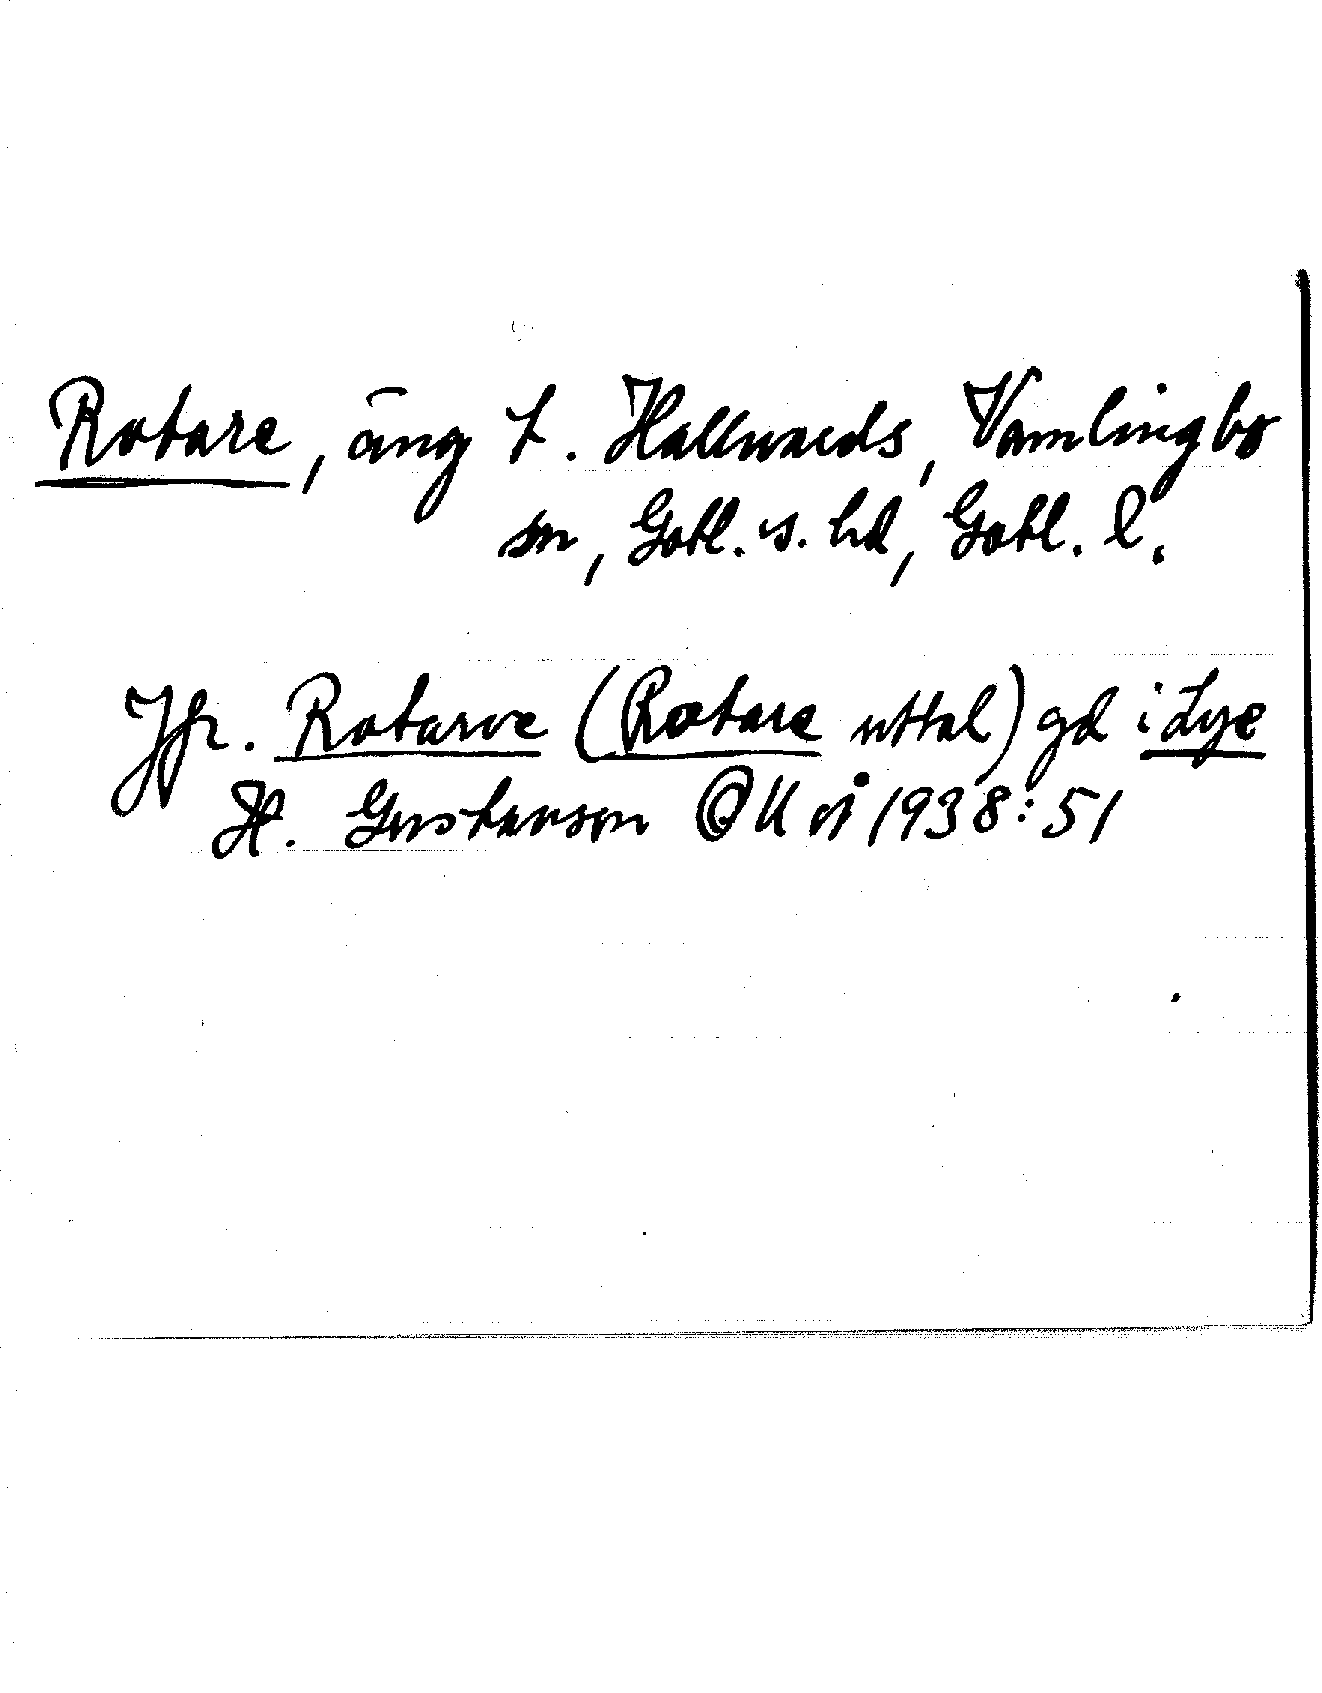 Rotare, äng t. Hallvards, Vamlingbo
sn, Gotl. s. hd, Gotl. l.
Jfr. Rotarve (Rotare uttal) gd i Lye
H. Gustavson 1938:51